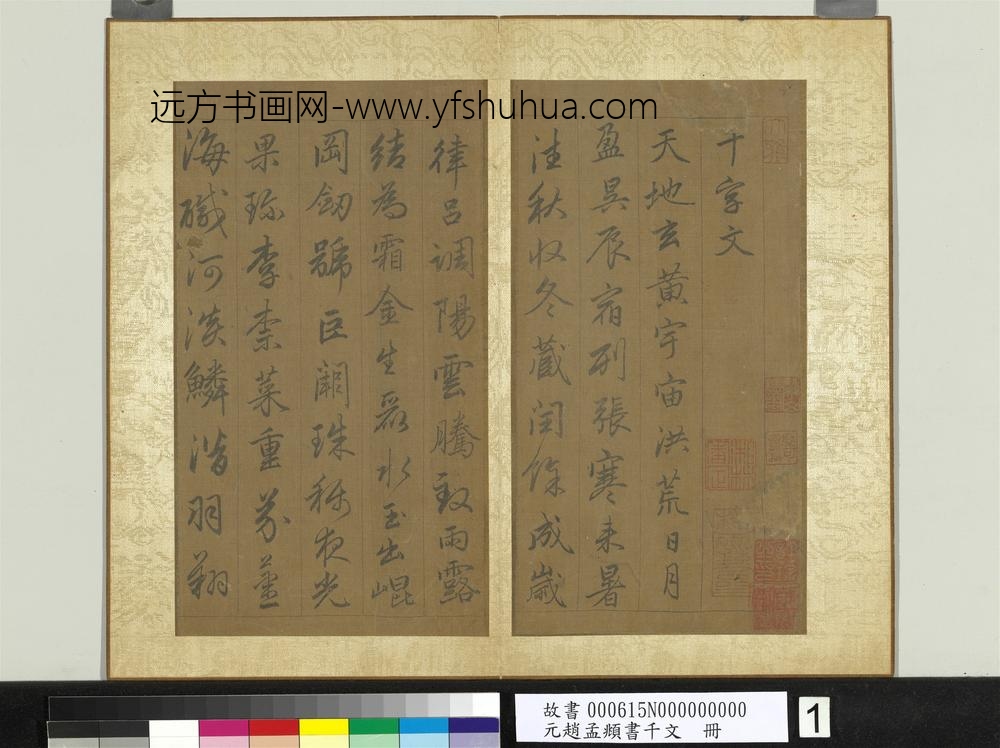 远方书画网-www.yfshuhua.com
千字文
天地玄黃宇宙洪荒日月
盈昃辰宿列張寒来暑
往秋收冬藏閏餘成歲
律呂調陽雲騰致雨露
結為霜金生麗水玉出崐
岡劒號巨闕珠稱夜光
果珍李柰菜重芥薑
海鹹河淡鱗潛羽翔
故書 000615N000000000
元趙孟頫書千文 冊
1